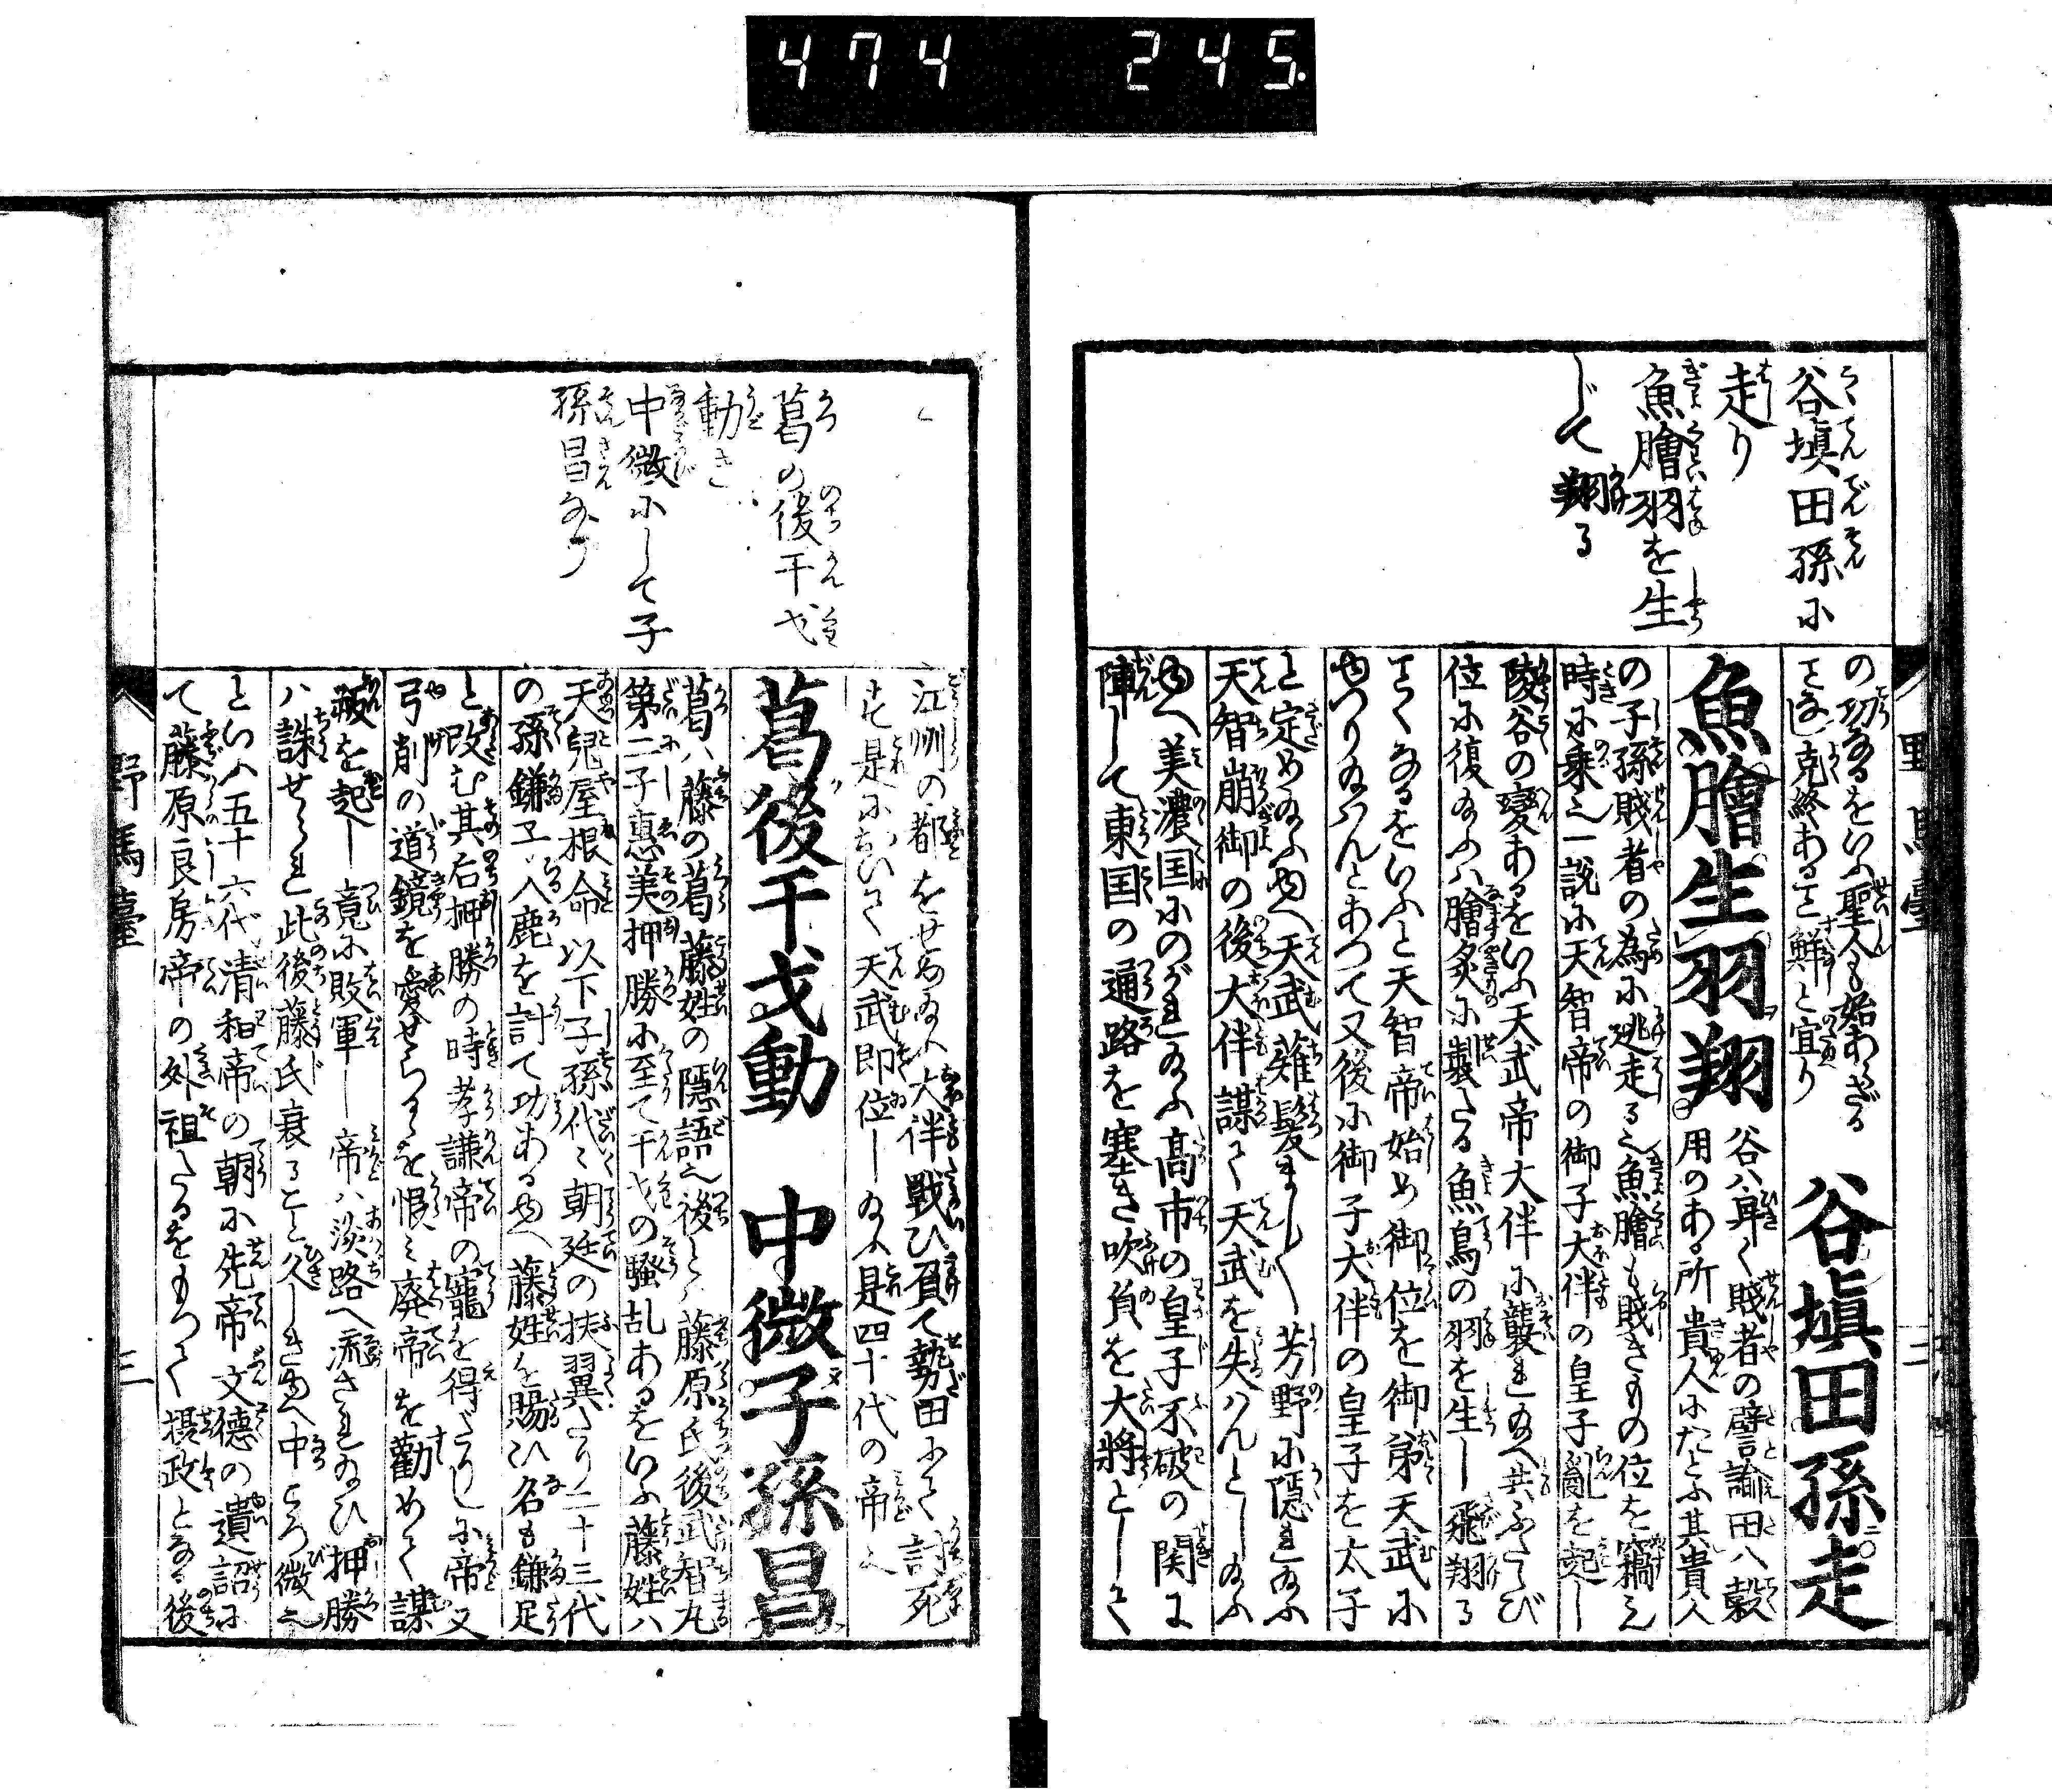 474 245.
谷塡田孫に
走り
魚膾羽を生
じて翔る
の功なるをいふ聖人も始あらざる
ことなし克終あること鮮と宜り
谷塡田孫走
魚膾生羽翔
谷ハ耶く賤者の譬諭田ハ穀
用のある所貴人にたとふ其貴人
の子孫賤者の為に逃走る也魚膾も賤きもの位を竊み
時に乗也一説に天智帝の御子大伴の皇子乱を起し
陵谷の変あるをいふ天武帝大伴に襲れ給へ共ふたゝび
位に復給ふハ膾炙に製たる魚鳥の羽を生し飛翔る
ごとくなるをいふと天智帝始め御位を御弟天武に
ゆづり給ハんとあつて又後に御子大伴の皇子を太子
と定め給ふゆへ天武薙髪ましく芳野に隠れ給ふ
天智崩御の後大伴謀て天武を失ハんとし給ふ
ゆへ美濃国にのがれ給ふ高市の皇子不破の関に
陣して東国の通路を塞き吹負を大将として
野馬臺
二
葛の後干戈
動き
中微にして子
孫昌なり
江洲の都をせめ給ふ大伴戦ひ負て勢田にて討死
す是において天武即位し給ふ是四十代の帝也
葛後干戈動 中微子孫昌
葛ハ藤の葛藤姓の隠語也後とハ藤原氏後武智丸
第二子惠美押勝に至て干戈の騒乱あるをいふ藤姓ハ
天児屋根命以下子孫代々朝廷の扶翼たり二十三代
の孫鎌子入鹿を討て功あるゆへ藤姓を賜ひ名も鎌足
と改む其后押勝の時孝謙帝の寵を得ざりしに帝又
弓削の道鏡を愛せらるゝを恨み廃帝を勸めて謀
叛を起し竟に敗軍し帝ハ淡路へ流され給ひ押勝
ハ誅せられ此後藤氏衰ること久しきゆへ中ころ微也
といふ五十六代清和帝の朝に先帝文徳の遺詔に
て藤原良房帝の外祖たるをもつて摂政となる後
野馬臺
三